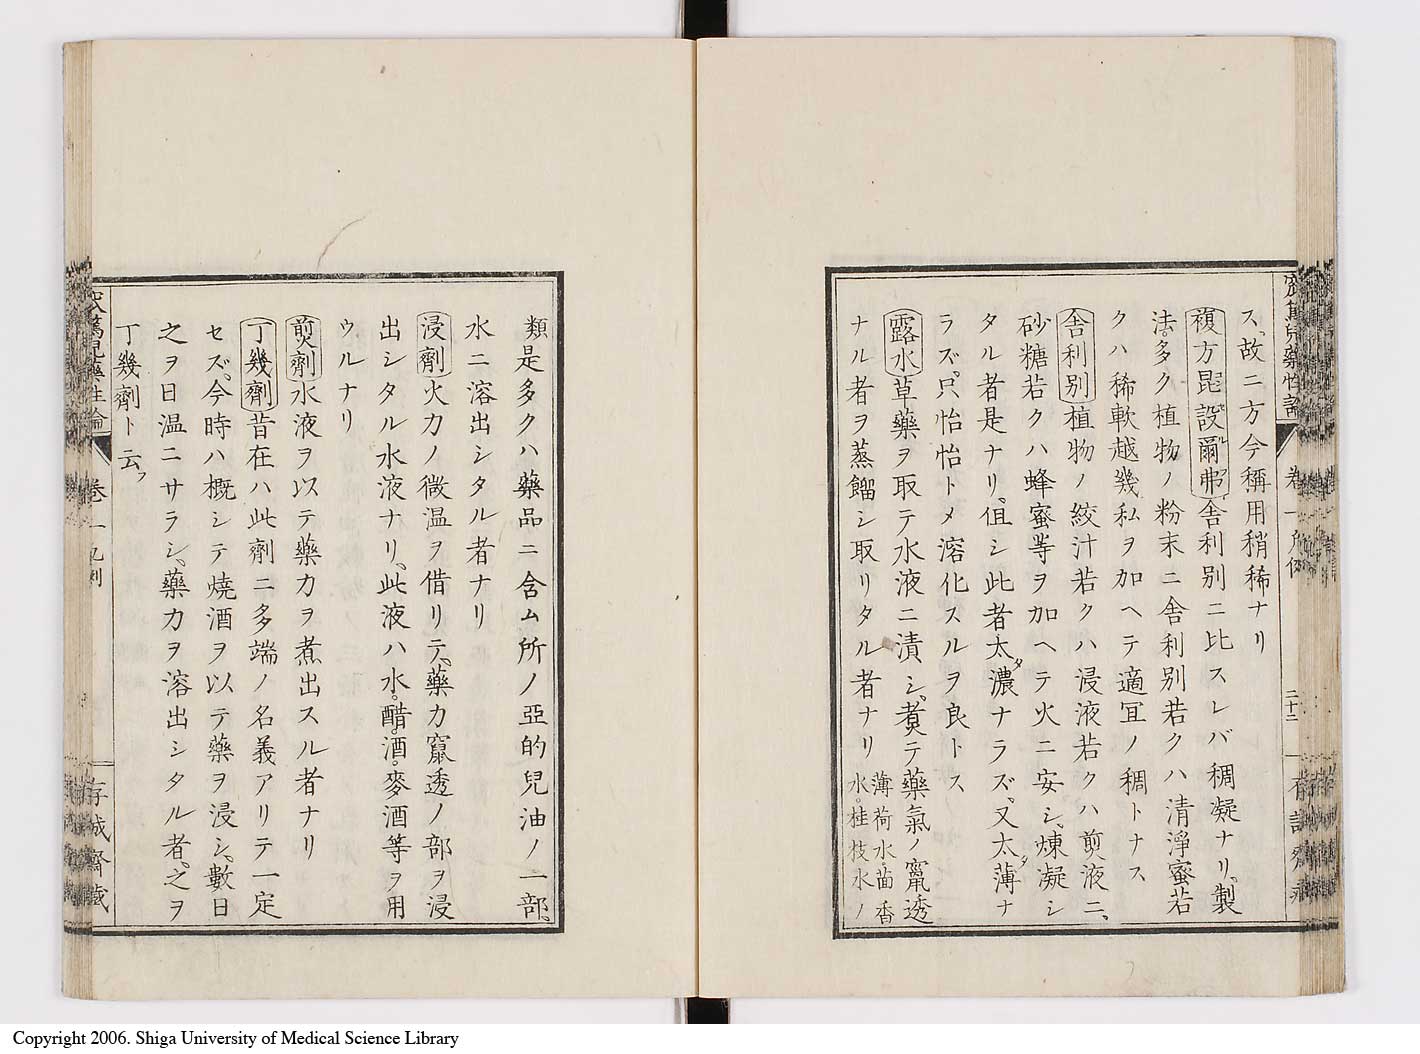 ス、故ニ方今稱用稍稀ナリ
複方昆設爾弗舎利別ニ比スレバ稠凝ナリ、製
法。多ク植物ノ粉末ニ舎利別若クハ清淨蜜若
クハ稀軟越幾私ヲ加ヘテ適冝ノ稠トナス
舎利別植物ノ絞汁若クハ浸液若クハ煎液ニ、
砂糖若クハ蜂蜜等ヲ加ヘテ火ニ安シ、煉凝シ
タル者是ナリ、但シ此者太タ濃ナラズ、又太タ薄ナ
ラズ、只怡怡トメ溶化スルヲ良トス
露水草藥ヲ取テ水液ニ漬シ、煮テ藥氣ノ竄透
ナル者ヲ蒸餾シ取リタル者ナリ薄荷水。茴香
水。桂枝水ノ
類是多クハ藥品ニ含ム所ノ亞的兒油ノ一部、
水ニ溶出シタル者ナリ
浸劑火力ノ微温ヲ借リテ、藥力竄透ノ部ヲ浸
出シタル水液ナリ、此液ハ水。醋。酒。麥酒等ヲ用
ウルナリ
煎劑水液ヲ以テ藥力ヲ煮出スル者ナリ
丁幾劑昔在ハ此劑ニ多端ノ名義アリテ一定
セズ、今時ハ概シテ燒酒ヲ以テ藥ヲ浸シ、數日
之ヲ日温ニサラシ、藥力ヲ溶出シタル者、之ヲ
丁幾劑ト云フ
卷一
二十二
卷一
存誠齋藏
Copyright 2006. Shiga University of Medical Science Library